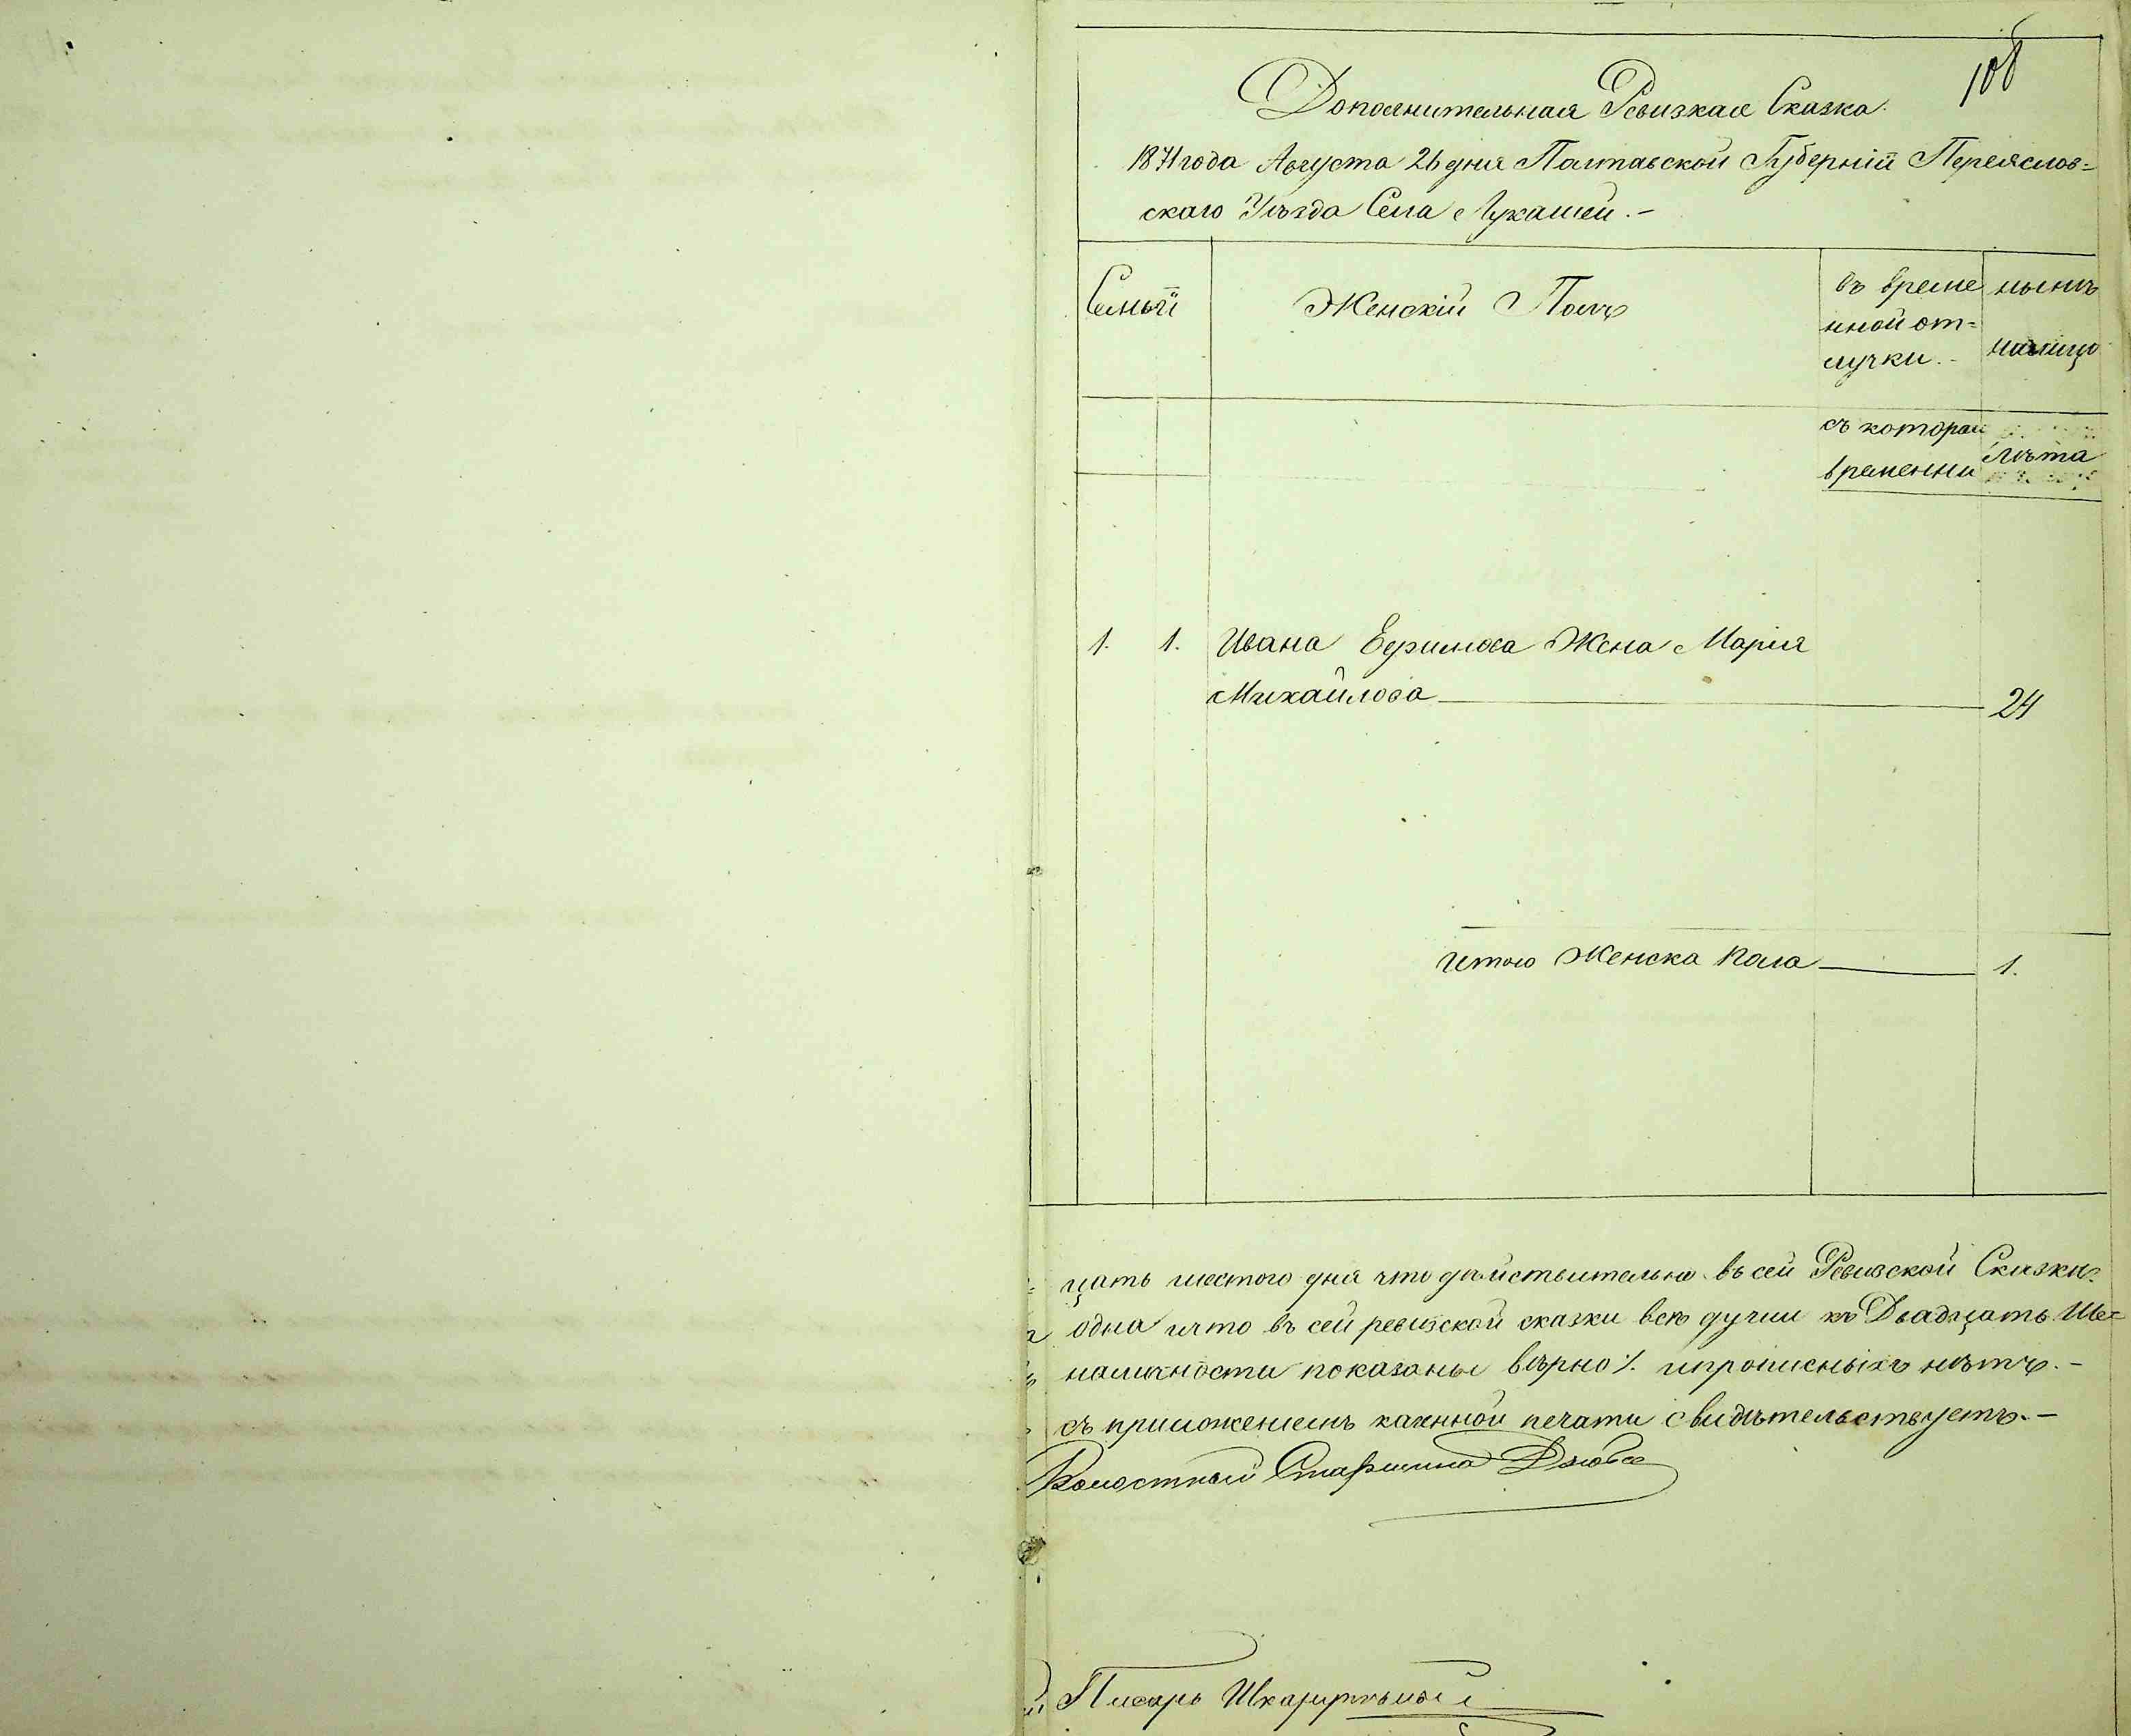 108
Дополнительная Ревизкая Сказка.
1871 года Августа 26 дня Полтавской Губерніи Переяслов-
скаго Уѣзда Села Лукашей. –
Семьи
Женскій Полъ
въ време
нной от-
лучки. –
нынѣ
налицо
съ которои
временни
Лѣта
1. 1. Ивана Ефимова Жена Марія
Михайлова 24
Итого Женска пола 1.
цать шестого дня что дѣйствительно въ сей Ревизской Сказки
одна и что въ сей ревизской сказки всѣ души къ Двадцать Ше-
наличности показаны вѣрно и прописныхъ нѣтъ. –
съ приложеніемъ казенной печати свидѣтельствуетъ. –
Волостный Старшина Дзюба
Писарь